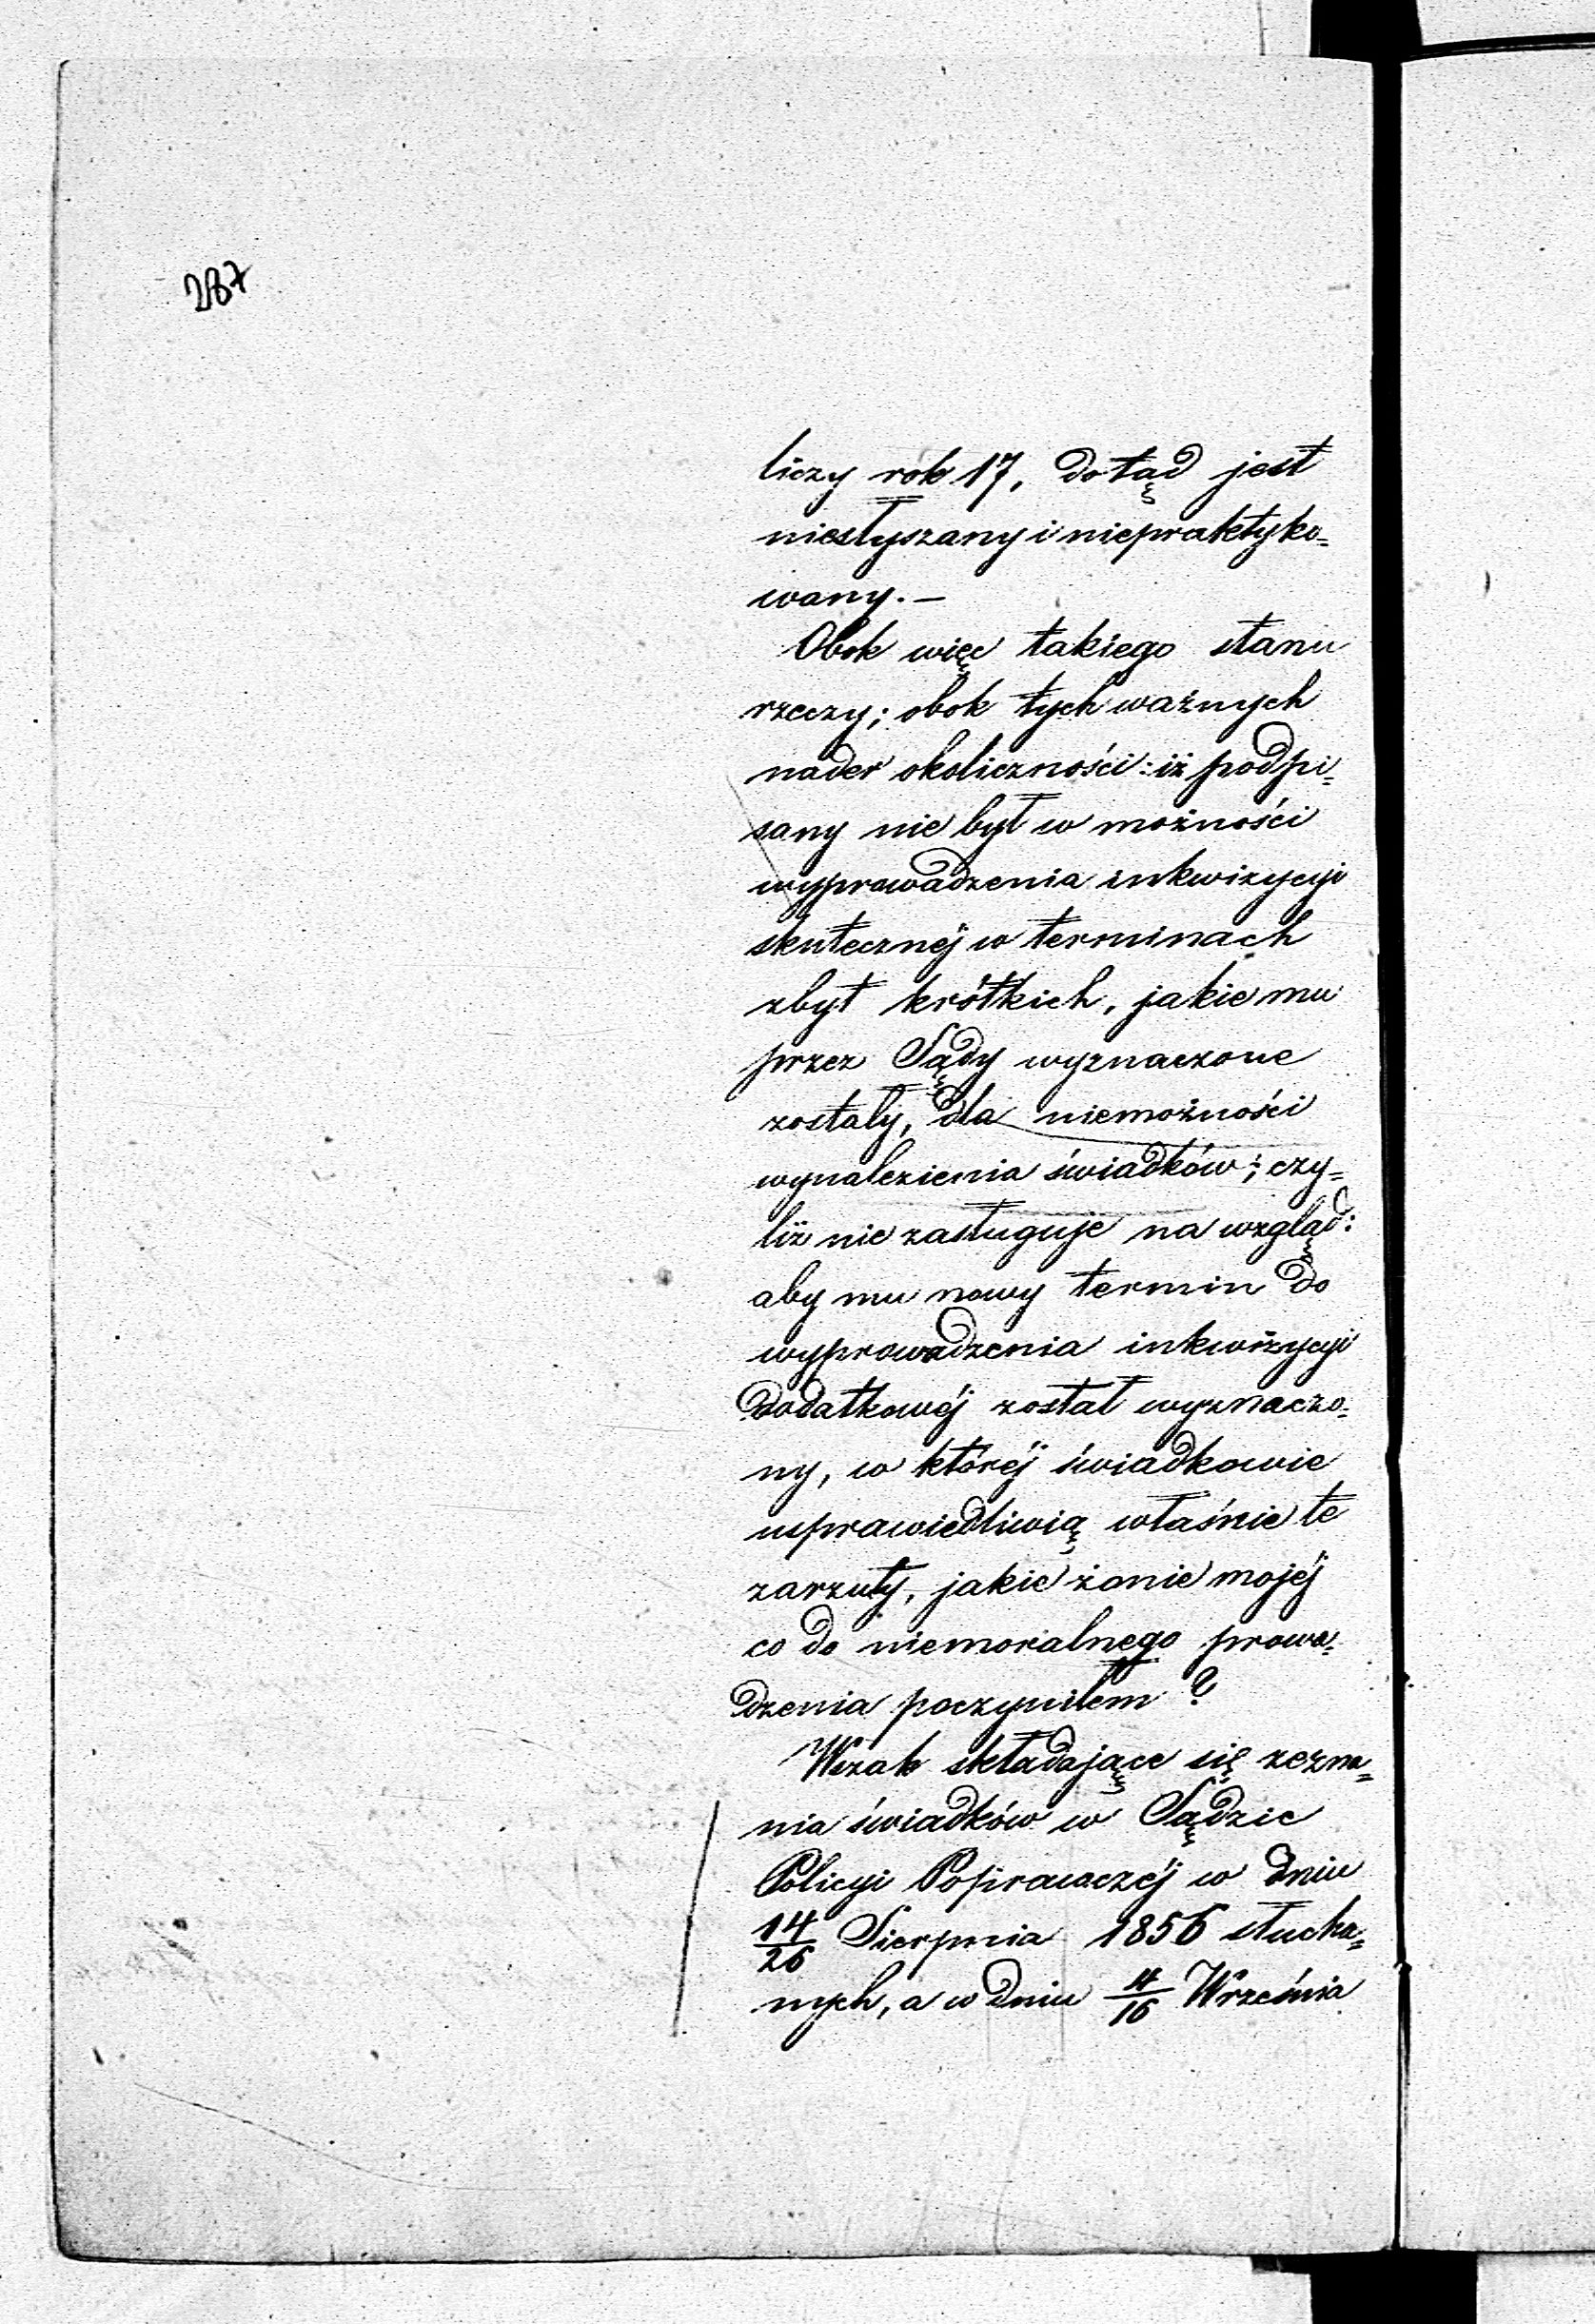 287
liczy rok 17, dotąd jest
niesłyszany i niepraktyko=
wany. —
Obok więc takiego stanu
rzeczy; obok tych ważnych
nader okoliczności: iż podpi=
sany nie był w możności
wyprowadzenia inkwizycyi
skutecznéj w terminach
zbyt krótkich, jakie mu
przez Sądy wyznaczone
zostały, dla niemożności
wynalezienia świadków; czy=
liż nie zasługuje na wzgląd:
aby mu nowy termin do
wyprowadzenia inkwizycyi
dodatkowéj został wyznaczo=
ny, w któréj świadkowie
usprawiedliwią właśnie te
zarzuty, jakie żonie mojéj
co do niemoralnego prowa=
dzenia poczyniłem?
Wszak składające się zezna=
nia świadków w Sądzie
Policyi Poprawczéj w dniu
14/26 Sierpnia 1856 słucha=
nych, a w dniu 4/16 Września